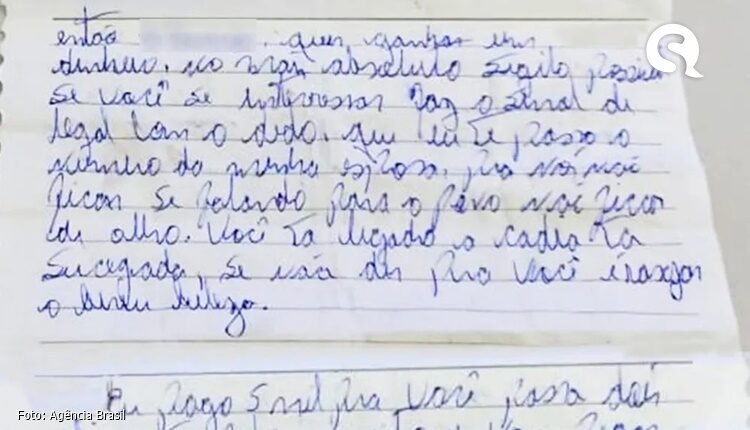 então quer ganhar um
dinheiro, no mais absoluto sigilo possivel
se você se interessar faz o sinal de
legal com o dedo. que eu te passo o
número da minha esposa, pra nós não
ficar se falando para o povo não ficar
de olho. você ta ligado a cadeia ta
sucegada, se não der pra você é rasgar
o beleza.
Eu pago 5 mil pra você passa dois
Foto: Agência Brasil